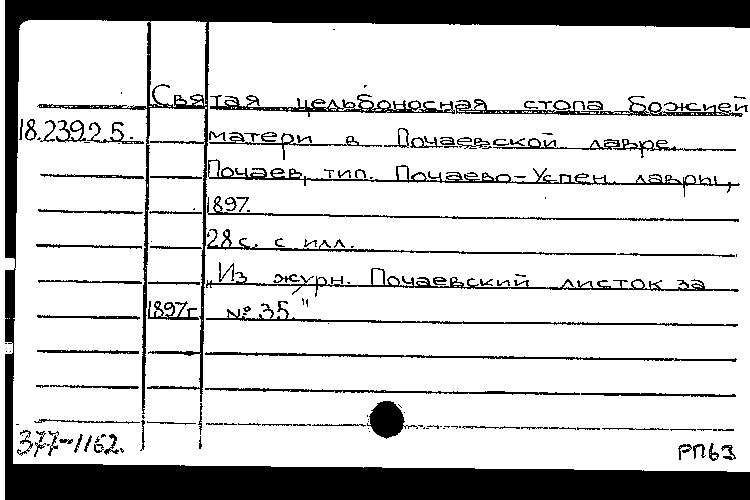 Святая цельбоносная стопа Божией
18.239.2.5. матери в Почаевской лавре.
Почаев, тип. Почаево-Успен. лавры,
1897.
28 с. с илл.
„Из журн. Почаевский листок за
1897г. № 35."
377-1162.
РПБЗ